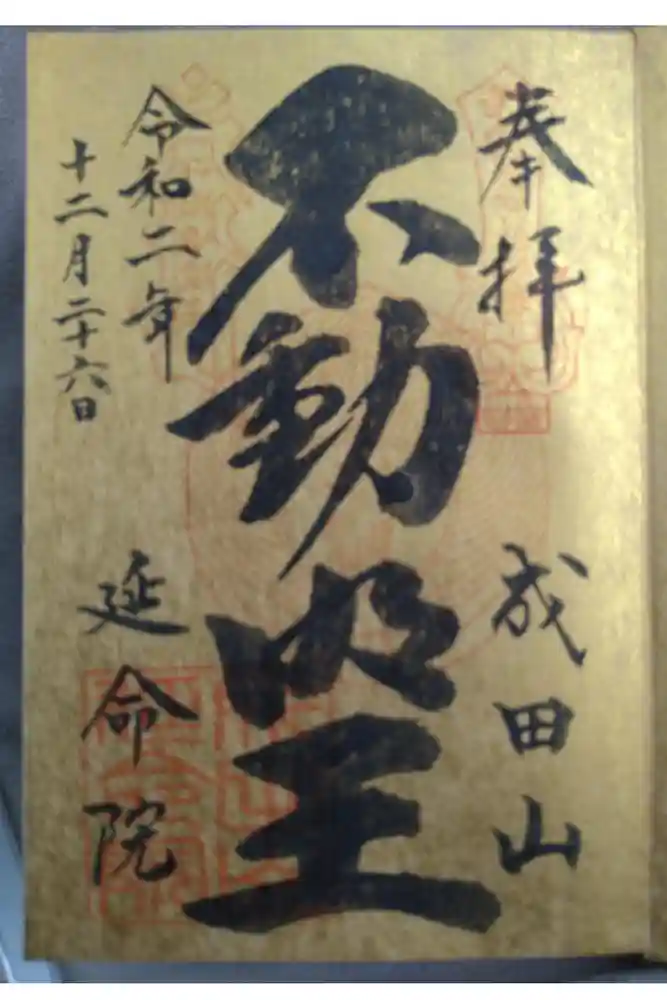 奉拝
成田山
不動明王
令和二年
十二月二十六日
延命院